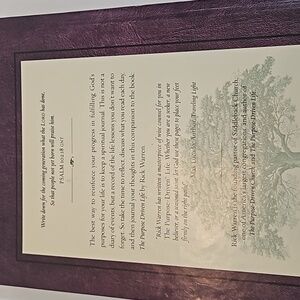 Write down for the coming generation what the LORD has done,
So that people not yet born will praise him.
PSALM 102:18 GNT
The best way to reinforce your progress in fulfilling God's
purposes for your life is to keep a spiritual journal. This is not a
diary of events, but a record of the life lessons you don't want to
forget. So take the time to reflect, discuss what you read each day,
and then journal your thoughts in this companion to the book
The Purpose-Driven Life by Rick Warren.
"Rick Warren has written a masterpiece of wise counsel for you in
The Purpose-Driven Life. Whether you are a seeker, a new
believer, or a seasoned saint, let God use these pages to place your feet
firmly on the right path."
Max Lucado, Author, Traveling Light
Rick Warren is the founding pastor of Saddleback Church,
one of America's largest congregations, and author of
The Purpose-Driven Church and The Purpose-Driven Life.